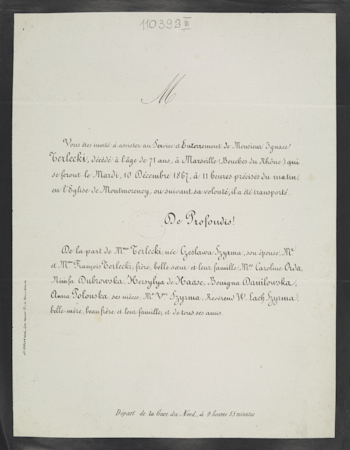 110393 III
M
Vous êtes invité à assister au Service et Enterrement de Monsieur Ignace
Terlecki, décédé à l'âge de 71 ans, à Marseille (Bouches du Rhône) qui
se feront le Mardi, 10 Décembre 1867, à 11 heures précises du matin,
en l'Eglise de Montmorency, ou suivant sa volonté, il a été transporté.
De Profundis!
De la part de Mme Terlecki, née Czeslawa Szyrma, son épouse, Mr
et Mme François Terlecki, frère, belle sœur et leur famille, Mmes Caroline
Nimfa Dubrowska, Hersylya de Haase, Benigna Danilowska,
Anna Polonska ses nièces, Mr Vve Szyrma, Reverend W. Lach Szyrma,
belle-mère, beau frère et leur famille, et de tous ses amis.
Départ de la Gare du Nord, à 9 heures 55 minutes